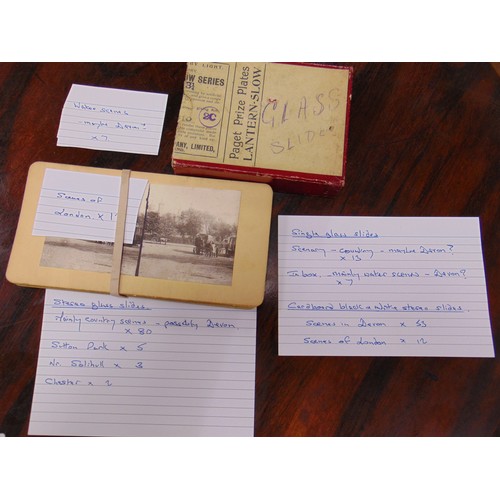 Water scenes
- maybe Devon?
x 7
W SERIES
Paget Prize Plates
LANTERN-SLOW
GLASS
SLIDES
ANY, LIMITED,
Scenes of
London. x 1
Stereo glass slides.
Mainly country scenes - possibly Devon
x 80
Sutton Park x 5
Nr. Solihull x 3
Chester x 2
Single glass slides
Scenery - country - maybe Devon?
x 13
In box - mainly water scenes - Devon?
x 7
Cardboard black + white stereo slides.
Scenes in Devon x 53
Scenes of London x 12